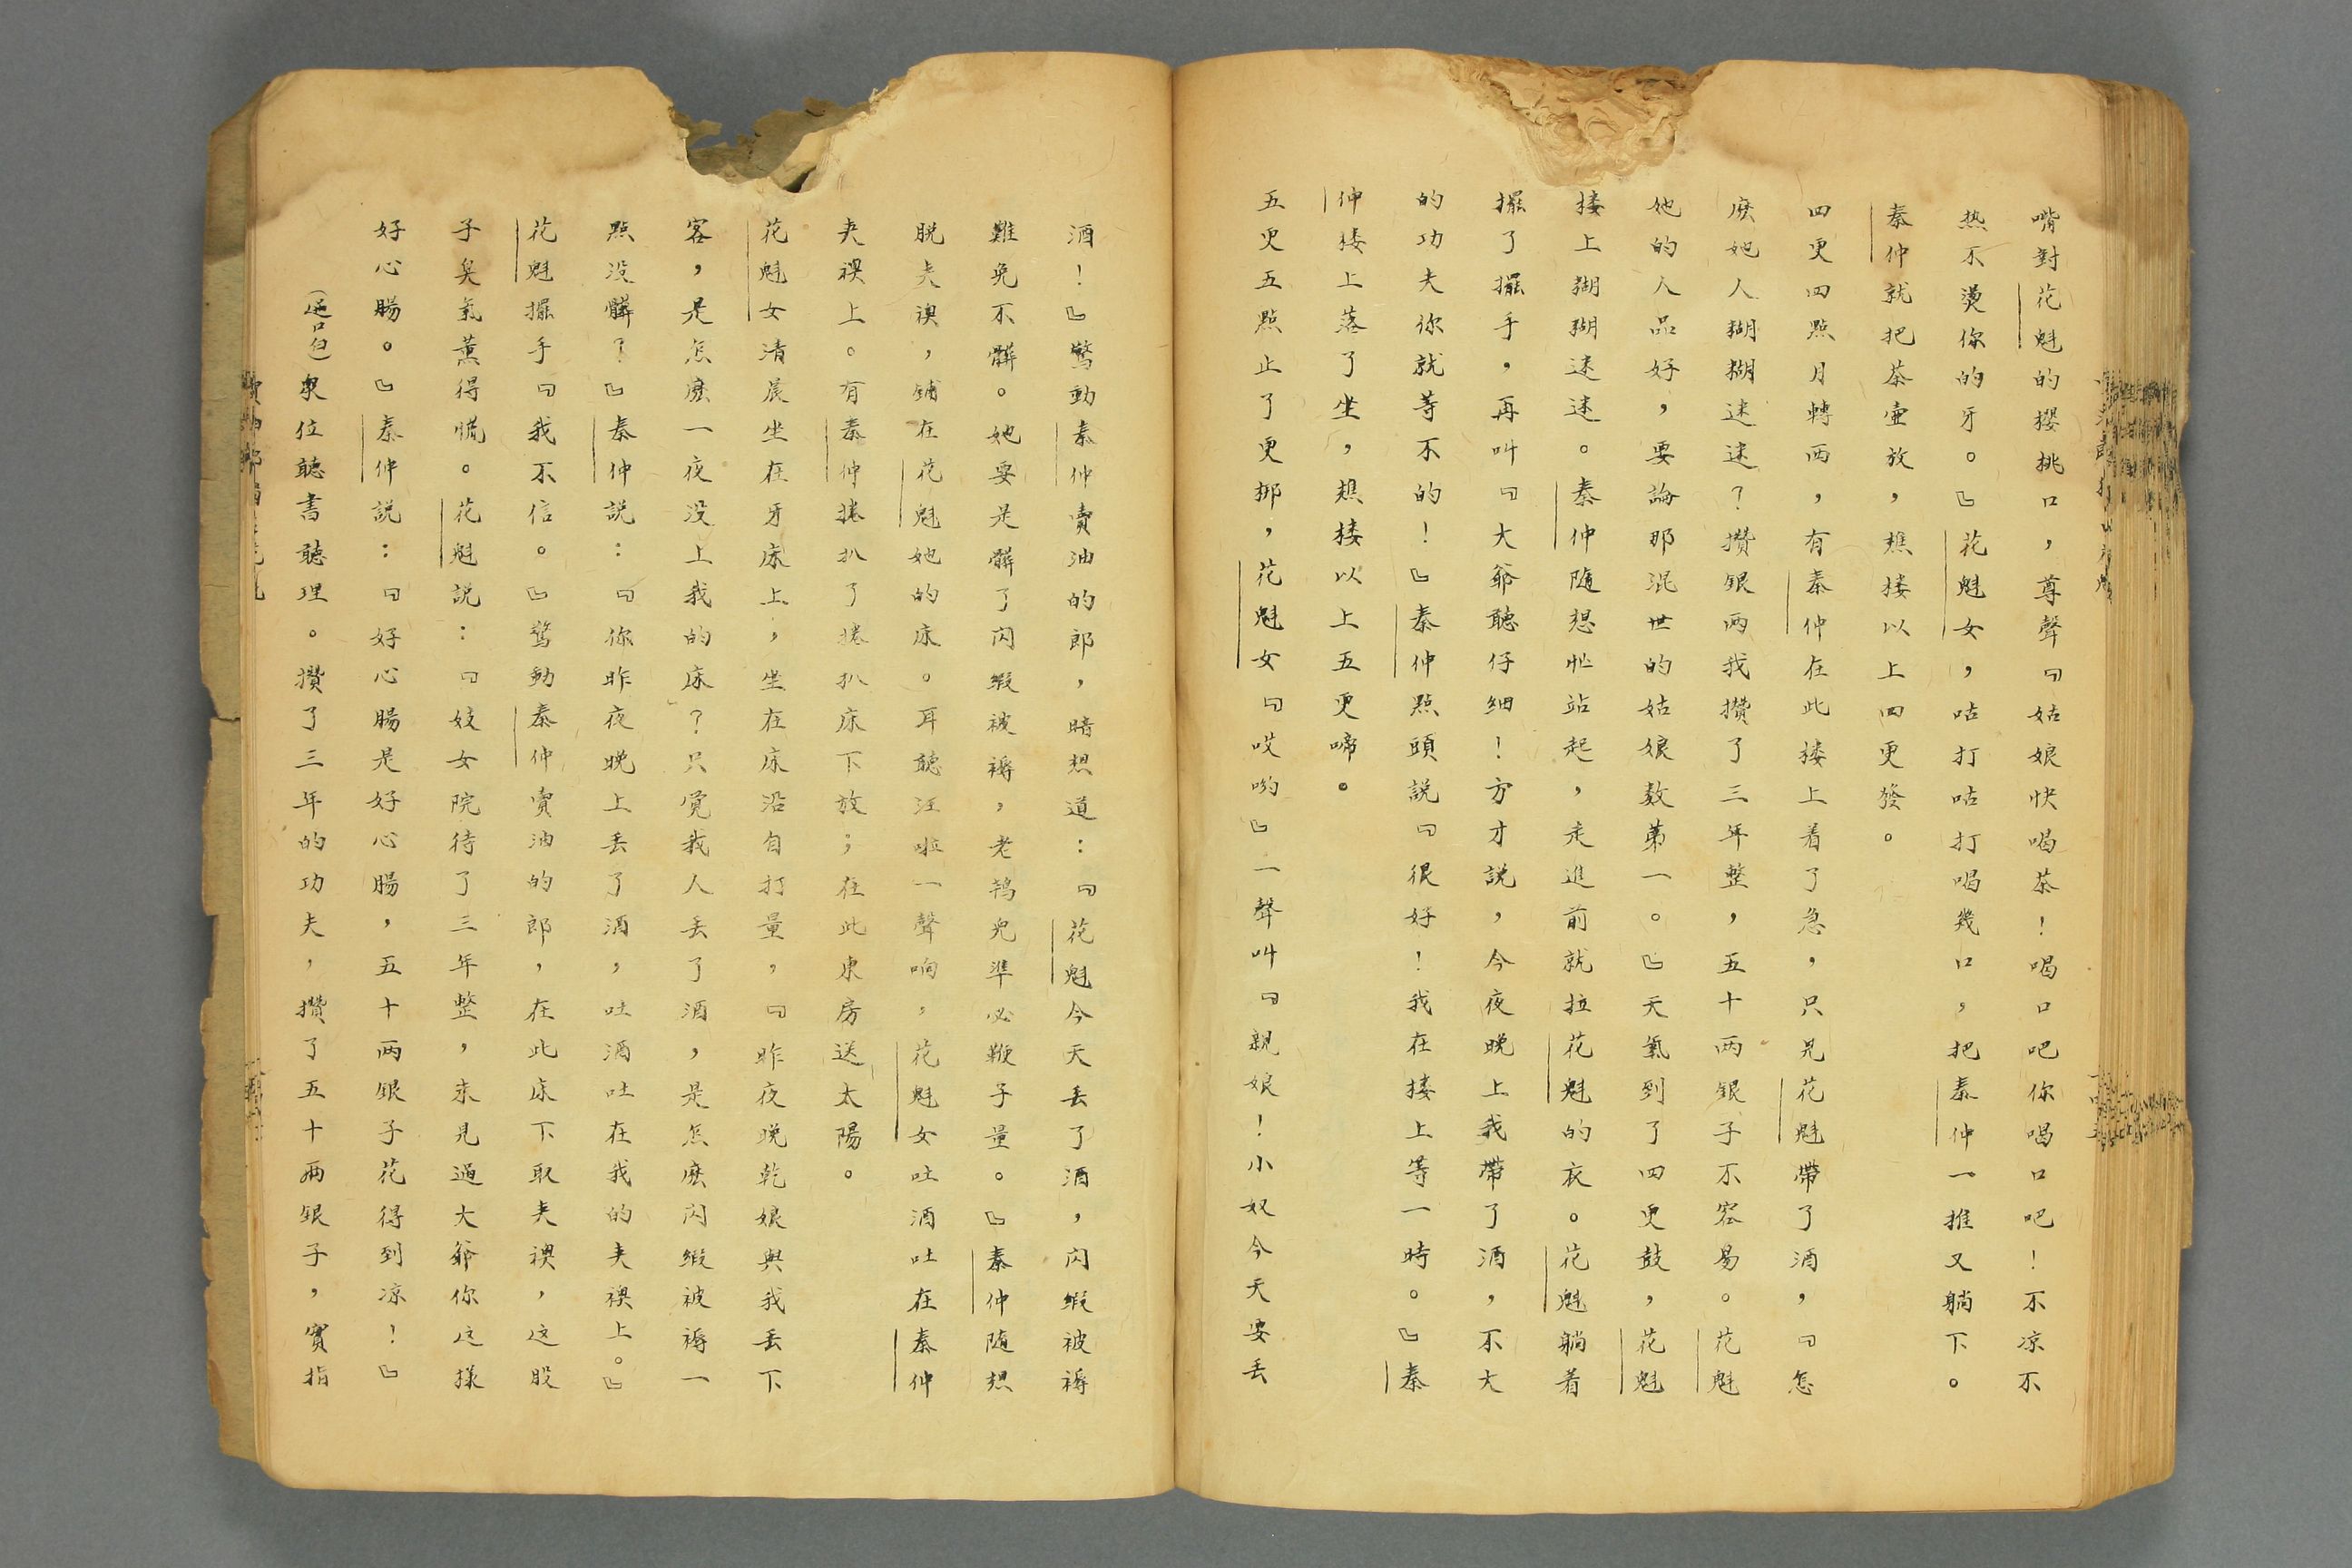 嘴對花魁的櫻挑口，尊聲『姑娘快喝茶！喝口吧你喝口吧！不凉不
热不燙你的牙。』花魁女，咕打咕打喝幾口，把秦仲一推又躺下。
秦仲就把茶壷放，樵楼以上四更發。
四更四點月轉西，有秦仲在此楼上着了急，只見花魁帶了酒，『怎
庅她人糊糊迷迷？攒銀两我攢了三年整，五十两銀子不容易。花魁
她的人品好，要論那混世的姑娘数第一。』天氣到了四更鼓，花魁
楼上糊糊迷迷。秦仲随想忙站起，走進前就拉花魁的衣。花魁躺着
擺了擺手，再叫『大爺聽仔細！方才説，今夜晚上我帶了酒，不大
的功夫你就等不的！』秦仲點頭説『很好！我在楼上等一時。』秦
仲楼上落了坐，樵楼以上五更啼。
五更五點止了更挷，花魁女『哎哟』一聲叫『親娘！小奴今天要丢
酒！』驚動秦仲賣油的郎，暗想道：『花魁今天丢了酒，闪緞被褥
難免不髒。她要是髒了闪緞被褥，老鸨兒準必鞭子量。』秦仲随想
脱夹襖，鋪在花魁她的床。耳聽汪啦一聲响，花魁女吐酒吐在秦仲
夹襖上。有秦仲捲扒了捲扒床下放；在此東房送太陽。
花魁女清晨坐在牙床上，坐在床沿自打量，『昨夜晚乾娘與我丢下
客，是怎麽一夜没上我的床？只覚我人丢了酒，是怎麽闪緞被褥一
點没髒？』秦仲説：『你昨夜晚上丢了酒，吐酒吐在我的夹襖上。』
花魁擺手『我不信。』驚動秦仲賣油的郎，在此床下取夹襖，这股
子臭氣薰得慌。花魁説：『妓女院待了三年整，未見過大爺你这樣
好心腸。』秦仲説：『好心腸是好心腸，五十两銀子花得到凉！』
（過口白）衆位聽書聽理。攢了三年的功夫，攢了五十兩銀子，實指